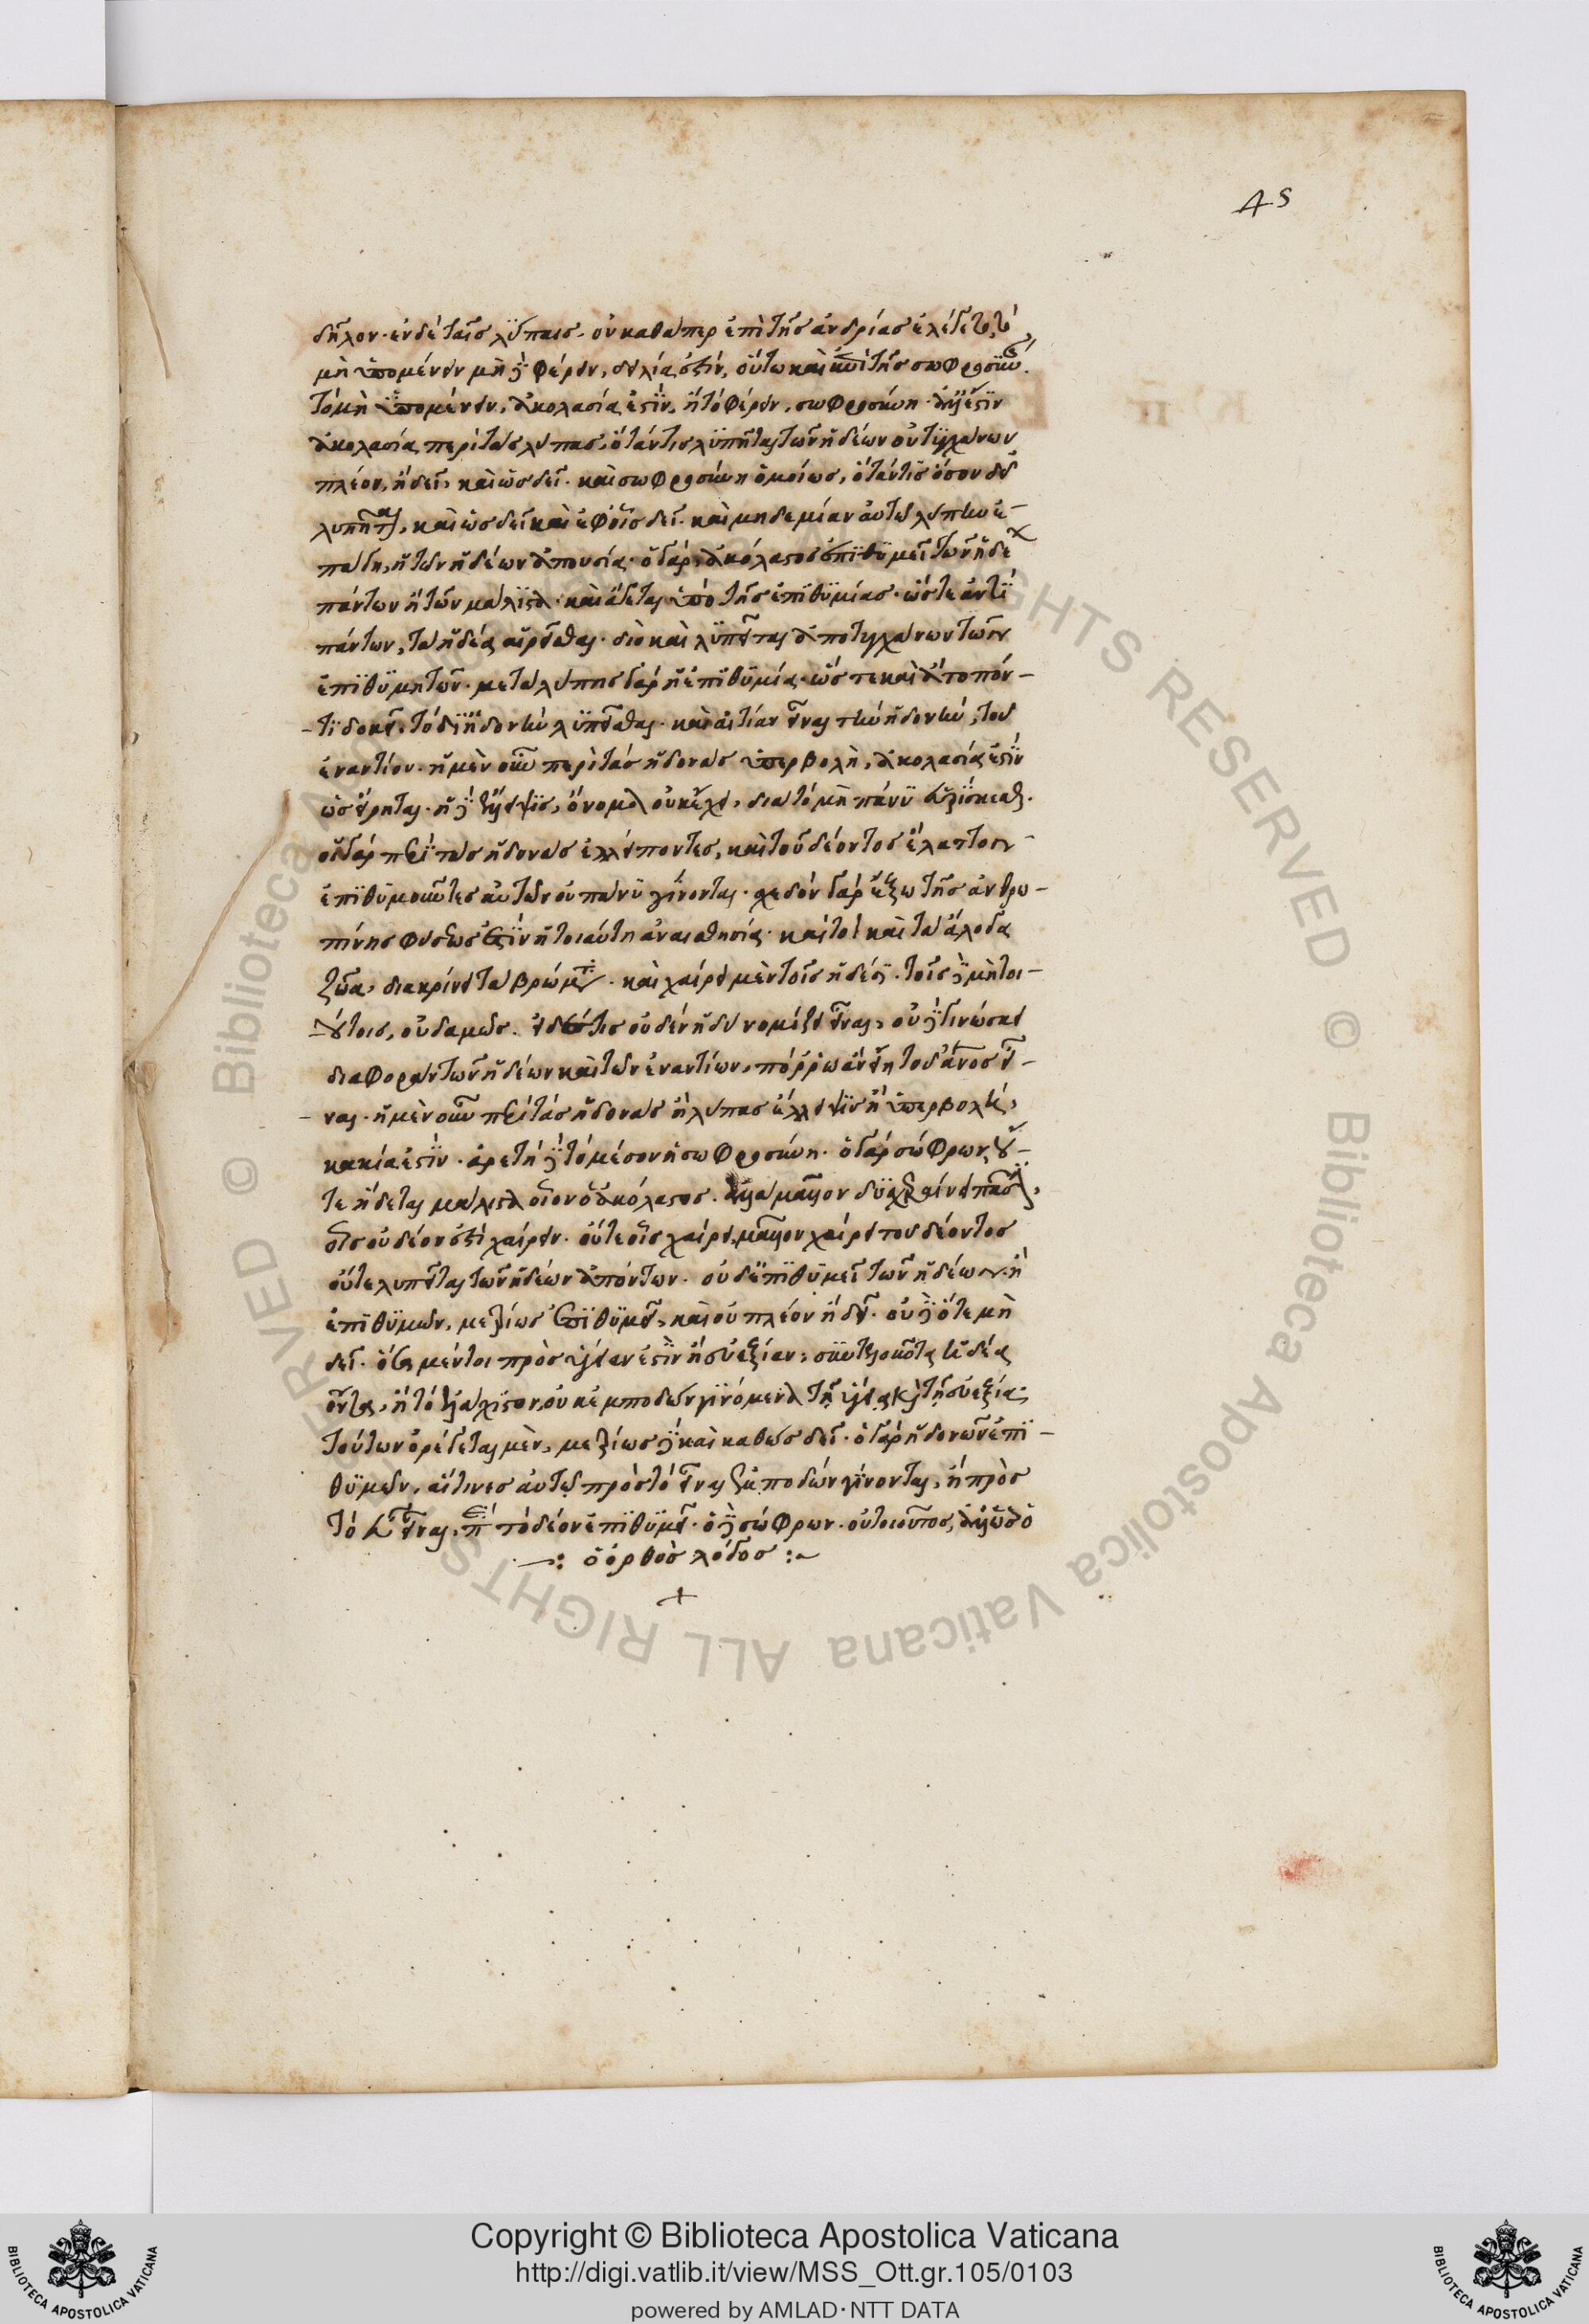 45
δῆλον· ἐν δὲ ταῖς λύπαις· οὐ καθάπερ ἐπὶ τῆς ἀνδρίας ἐλέγετο, τὸ
μὴ ὑπομένειν μὴ δὲ φέρειν, δειλία ἐστὶν, οὕτω καὶ ἐπὶ τῆς σωφροσύνης
τὸ μὴ ὑπομένειν, ἀκολασία ἐστὶν, ἢ τὸ φέρειν, σωφροσύνη· ἀλλ' ἔστιν
ἀκολασία περὶ τὰς λύπας, ὅταν τις λυπῆται τῶν ἡδέων οὐ τυγχάνων
πλέον, ἢ δεῖ, καὶ ὡς δεῖ· καὶ σωφροσύνη ὁμοίως, ὅταν τις ὅσον δεῖ
λυπῆται, καὶ ὡς δεῖ καὶ ἐφ' οἷς δεῖ· καὶ μηδεμίαν αὐτῷ λύπην ἐ-
πάγῃ, ἡ τῶν ἡδέων ἀπουσία· ὁ γὰρ ἀκόλαστος ἐπιθυμεῖ τῶν ἡδέων
πάντων ἢ τῶν μάλιστα· καὶ ἄγεται ὑπὸ τῆς ἐπιθυμίας· ὥστε ἀντὶ
πάντων, τὰ ἡδέα αἱρεῖσθαι· διὸ καὶ λυπεῖται ἀποτυγχάνων τῶν
ἐπιθυμητῶν· μετὰ λύπης γὰρ ἡ ἐπιθυμία· ὥς τε καὶ ἄτοπόν
τι δοκεῖ, τὸ δι' ἡδονὴν λυπεῖσθαι· καὶ αἰτίαν εἶναι τὴν ἡδονὴν, τοῦ
ἐναντίου· ἡ μὲν οὖν περὶ τὰς ἡδονὰς ὑπερβολὴ, ἀκολασία ἐστὶν
ὡς εἴρηται· ἡ δὲ ἔλλειψις, ὄνομα οὐκ ἔχει, διὰ τὸ μὴ πάνυ εὑρίσκεσθαι·
οἱ γὰρ περὶ τὰς ἡδονὰς ἐλλείποντες, καὶ τοῦ δέοντος ἔλαττον
ἐπιθυμοῦντες αὐτῶν οὐ πάνυ γίνονται· σχεδὸν γὰρ ἔξω τῆς ἀνθρω-
πίνης φύσεως ἐστὶν ἡ τοιαύτη ἀναισθησία· καίτοι καὶ τὰ ἄλογα
ζῶα, διακρίνει τὰ βρώματα· καὶ χαίρει μὲν τοῖς ἡδέσι· τοῖς δὲ μὴ τοι-
ούτοις, οὐδαμῶς· εἰ δέ τις οὐδὲν ἡδὺ νομίζει εἶναι, οὐ δὲ γινώσκει
διαφορὰν τῶν ἡδέων καὶ τῶν ἐναντίων, πόρρω ἂν εἴη τοῦ ἄνος εἶ-
ναι· ἡ μὲν οὖν περὶ τὰς ἡδονὰς ἢ λύπας ἔλλειψιν ἢ ὑπερβολὴ,
κακία ἐστὶν· ἀρετὴ δὲ τὸ μέσον ἡ σωφροσύνη· ὁ γὰρ σώφρων, οὔ-
τε ἥδεται μάλιστα οἷον ὁ ἀκόλαστος· ἀλλὰ μᾶλλον δυσχεραίνει πᾶσιν,
οἷς οὐ δέον ἐστὶ χαίρειν· οὔτε οἷς χαίρει, μᾶλλον χαίρει τοῦ δέοντος
οὔτε λυπεῖται τῶν ἡδέων ἀπόντων· οὐδ' ἐπιθυμεῖ τῶν ἡδέων· ἢ
ἐπιθυμῶν, μετρίως ἐπιθυμεῖ, καὶ οὐ πλέον ἢ δεῖ· οὐ δὲ ὅτε μὴ
δεῖ· ὅσα μέντοι πρὸς ὑγείαν ἐστὶν ἢ εὐεξίαν, συντελοῦντα ἡδέα
ὄντα, ἢ τὸ ἐλάχιστον, οὐκ ἐμποδὼν γινόμενα τῇ ὑγείᾳ καὶ τῇ εὐεξίᾳ,
τούτων ὀρέγεται μὲν, μετρίως δὲ καὶ καθὼς δεῖ· ὁ γὰρ ἡδονῶν ἐπι-
θυμῶν, αἵτινες αὐτῷ πρὸς τὸ εἶναι ἐμποδὼν γίνονται, ἢ πρὸς
τὸ εὖ εἶναι, παρὰ τὸ δέον ἐπιθυμεῖ· ὁ δὲ σώφρων· οὐ τοιοῦτος, ἀλλ' ὡς ὁ
—: ὁ ὀρθὸς λόγος :~
+
Copyright © Biblioteca Apostolica Vaticana
http://digi.vatlib.it/view/MSS_Ott.gr.105/0103
powered by AMLAD·NTT DATA
BIBLIOTECA APOSTOLICA VATICANA
BIBLIOTECA APOSTOLICA VATICANA
© Biblioteca Apostolica Vaticana ALL RIGHTS RESERVED © Biblioteca Apostolica Vaticana ALL RIGHTS RESERVED